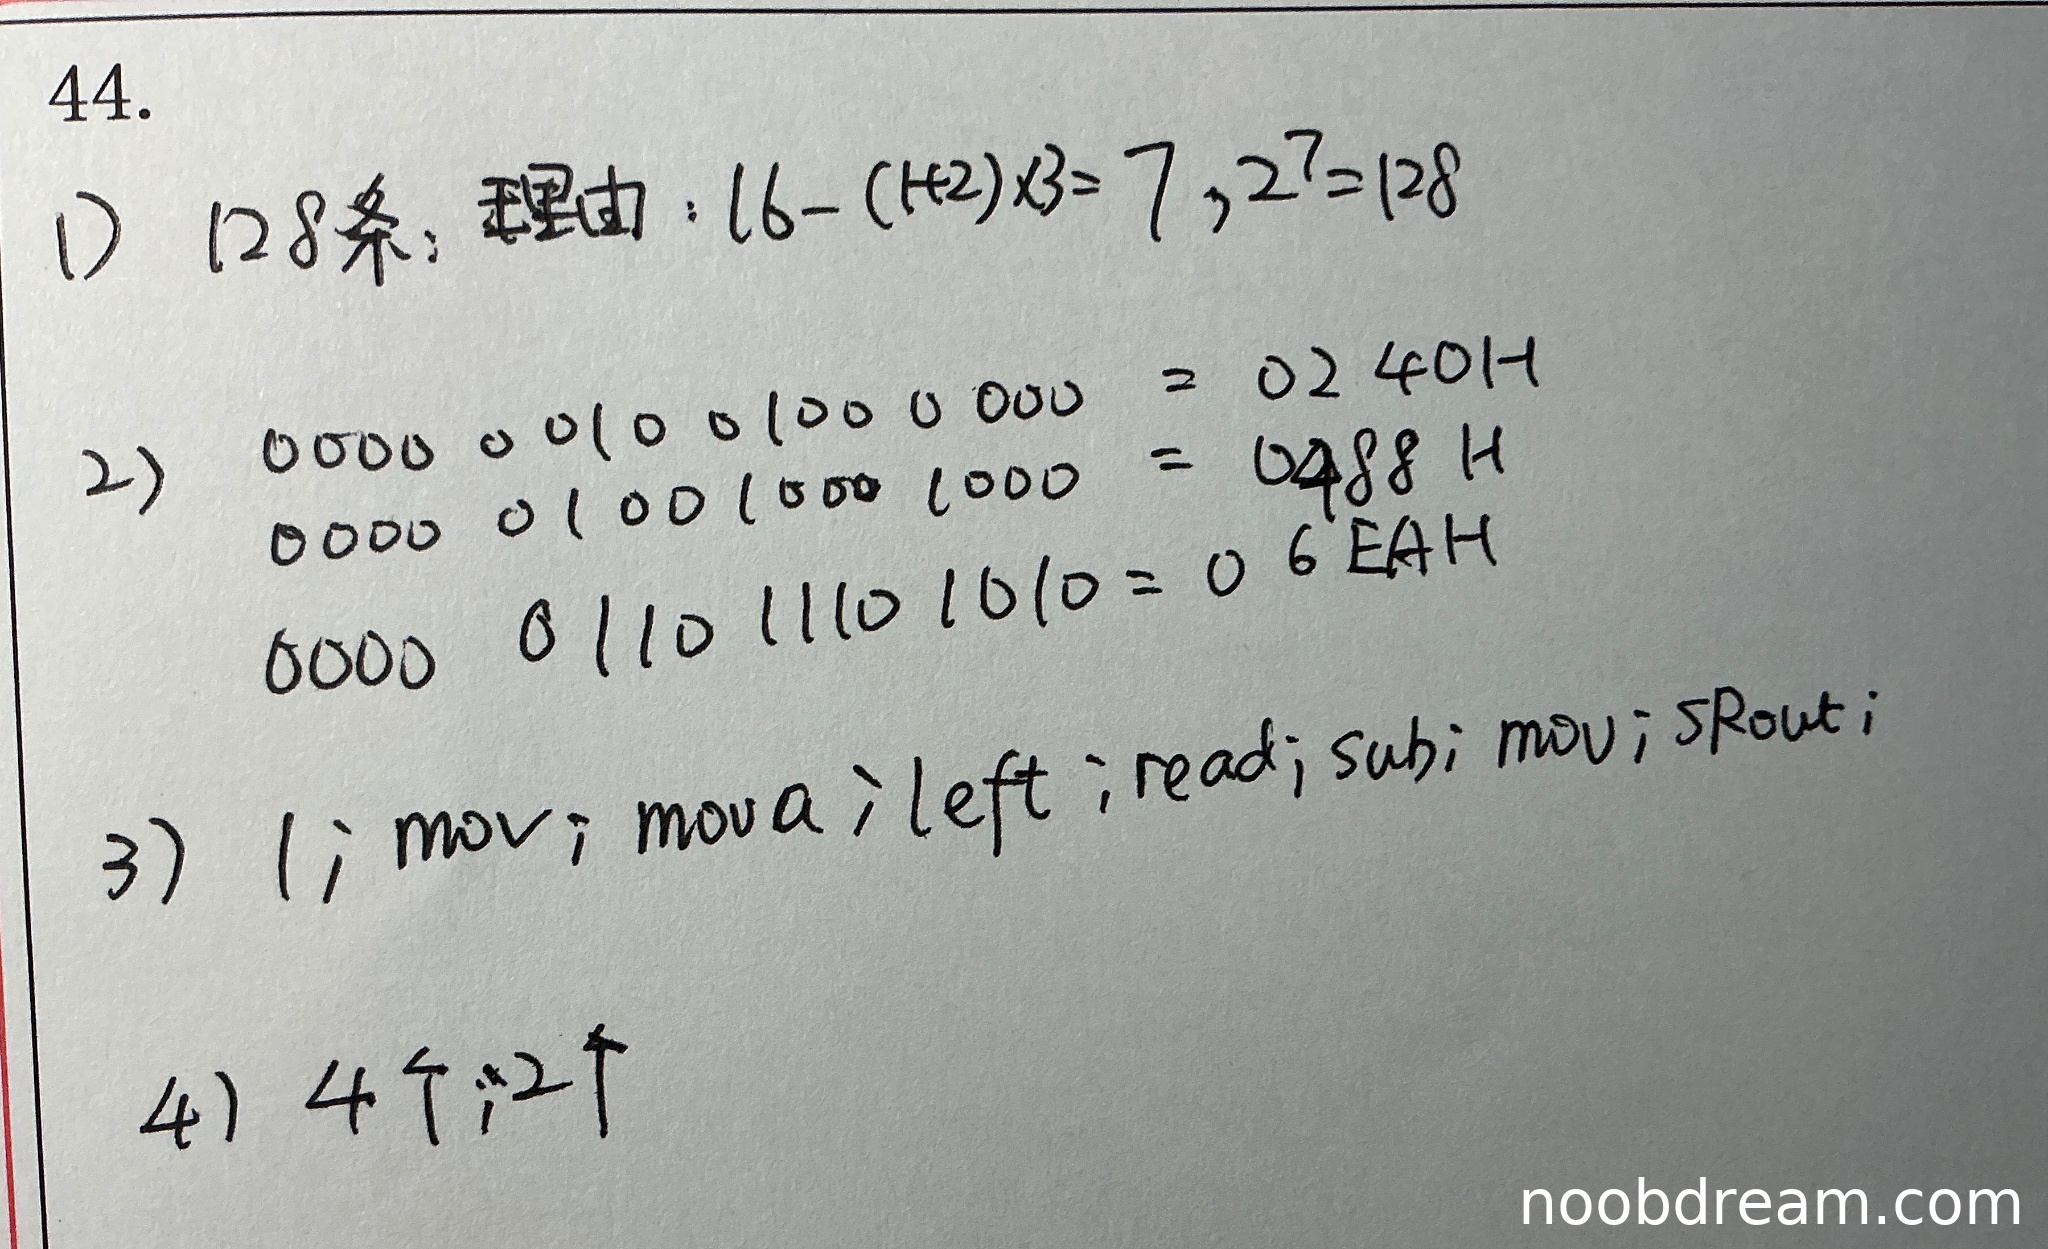 44.
1) 128条; 理由: 16-(1+2)×3=7,2⁷=128
2) 0000 0010 0100 0000 = 0240H
0000 0100 1000 1000 = 0488H
0000 0110 1110 1010 = 06EAH
3) 1; mov; mova; left; read; sub; mov; SRout;
4) 4个;2个
noobdream.com